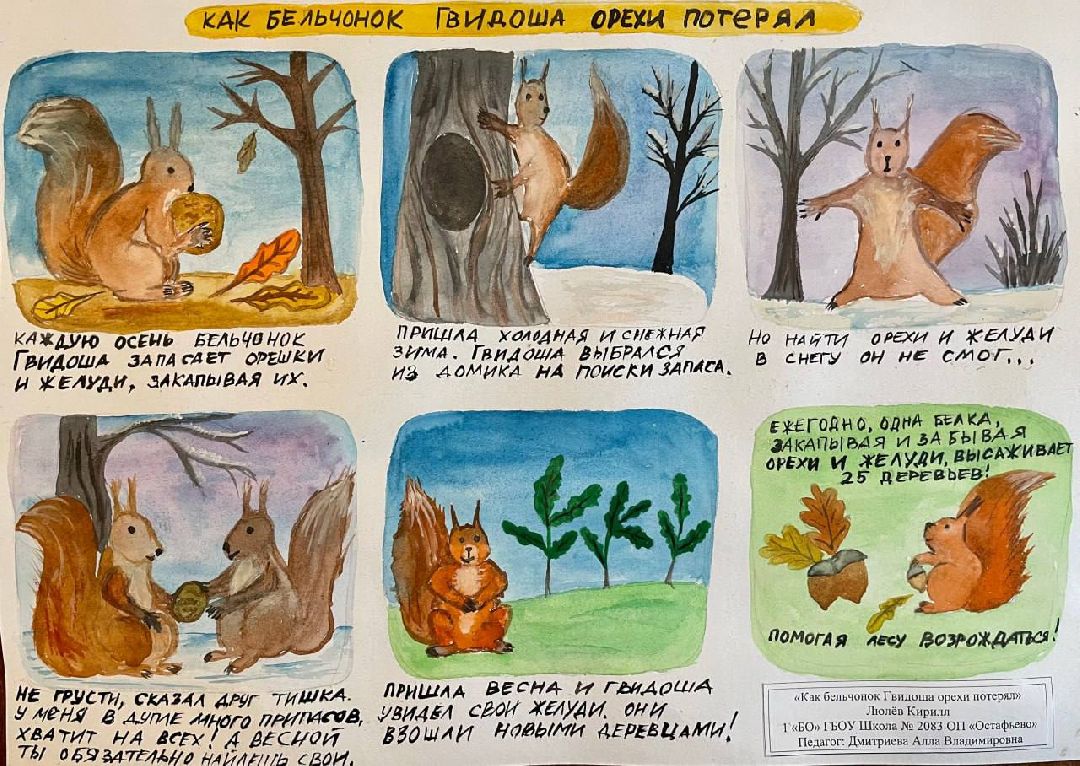 КАК БЕЛЬЧОНОК ГВИДОША ОРЕХИ ПОТЕРЯЛ
КАЖДУЮ ОСЕНЬ БЕЛЬЧОНОК
ГВИДОША ЗАПАСАЕТ ОРЕШКИ
И ЖЕЛУДИ, ЗАКАПЫВАЯ ИХ.
ПРИШЛА ХОЛОДНАЯ И СНЕЖНАЯ
ЗИМА. ГВИДОША ВЫБРАЛСЯ
ИЗ ДОМИКА НА ПОИСКИ ЗАПАСА.
НО НАЙТИ ОРЕХИ И ЖЕЛУДИ
В СНЕГУ ОН НЕ СМОГ...
НЕ ГРУСТИ, СКАЗАЛ ДРУГ ТИШКА.
У МЕНЯ В ДУПЛЕ МНОГО ПРИПАСОВ,
ХВАТИТ НА ВСЕХ! А ВЕСНОЙ
ТЫ ОБЯЗАТЕЛЬНО НАЙДЕШЬ СВОИ.
ПРИШЛА ВЕСНА И ГВИДОША
УВИДЕЛ СВОИ ЖЕЛУДИ. ОНИ
ВЗОШЛИ НОВЫМИ ДЕРЕВЦАМИ!
ЕЖЕГОДНО, ОДНА БЕЛКА,
ЗАКАПЫВАЯ И ЗАБЫВАЯ
ОРЕХИ И ЖЕЛУДИ, ВЫСАЖИВАЕТ
25 ДЕРЕВЬЕВ!
ПОМОГАЯ ЛЕСУ ВОЗРОЖДАТЬСЯ!
«Как бельчонок Гвидоша орехи потерял»
Люлёв Кирилл
1 «БО» ГБОУ Школа № 2083 ОП «Остафьево»
Педагог: Дмитриева Алла Владимировна